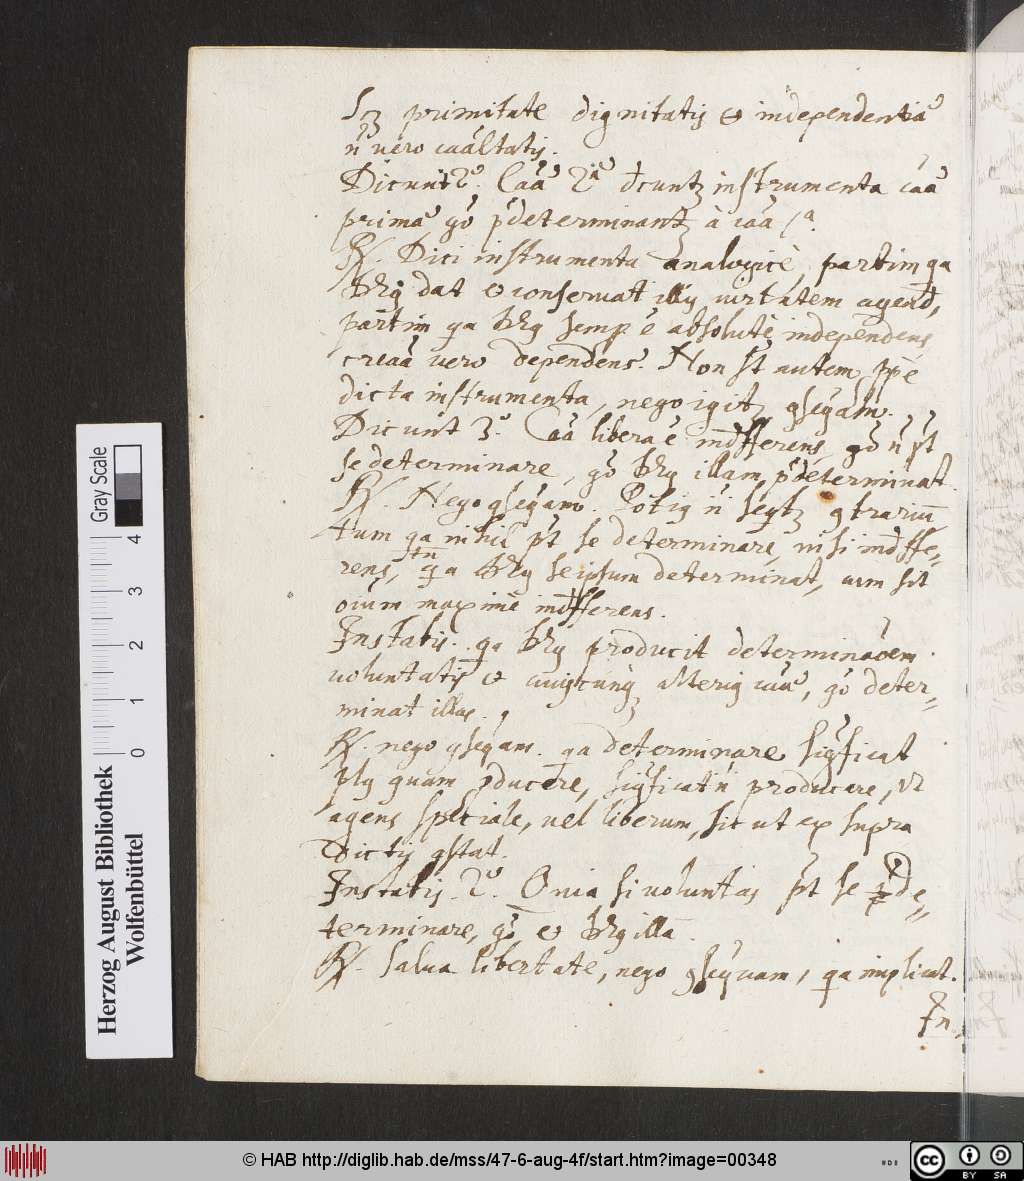 primitate dignitatis & independentia
n̄ vero caãltatis.
Dicunt 2º. Caã 2ª dcunt instrumenta caã
prima gº p̄determinant à caã 1ª.
R. Dici instrumenta analogicè, partim qa
dat & conservat illis virtutem agend,
partim qa semp ē absolutè independens
creaã vero dependens. Non st autem ppē
dicta instrumenta, nego igit qseqam.
Dicunt 3º. Caã libera ē indfferens, gº n̄ pt
se determinare, gº illam p̄determinat.
R. Nego qseqam. Potiq n̄ seqt qtrariū
tum qa nihil pt se determinare, nisi indffe=
rens, tū qa seipsum determinat, cum sit
oium maxime indfferens.
Instatis. qa producit determinaōem
voluntatis & alteriq caã, gº deter=
minat illas.
R. nego qseqam. qa determinare sigficat
plq quam ducere, sigficat n̄ producere, ut
agens speciale, vel liberum, sic ut ex supra
dictis qstat.
Instatis 2º. Quia si voluntas pt se de=
terminare, gº & illā.
R. Salva libertate, nego qsequam, qa implicat.
In
Gray Scale
4
3
2
1
0
Herzog August Bibliothek
Wolfenbüttel
© HAB http://diglib.hab.de/mss/47-6-aug-4f/start.htm?image=00348
cc
BY SA